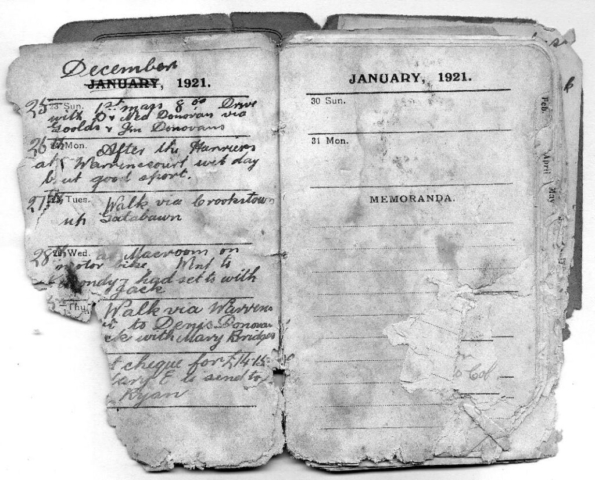 December
JANUARY, 1921.
25 Sun. 1st mass 8 oo Drive
with D & Ned Donovan via
Goolds & Jim Donovans
26th Mon. After the Harriers
at Warrencourt wet day
but good sport.
27th Tues. Walk via Crookstown
Gatabawn
28th Wed. Macroom on
motor bike Went to
had setts with
Jack
Thu
Walk via Warren
to Denis Donovan
with Mary Bridges
cheque for £14-15-
to send to
Ryan
JANUARY, 1921.
30 Sun.
31 Mon.
MEMORANDA.
Feb
April
May